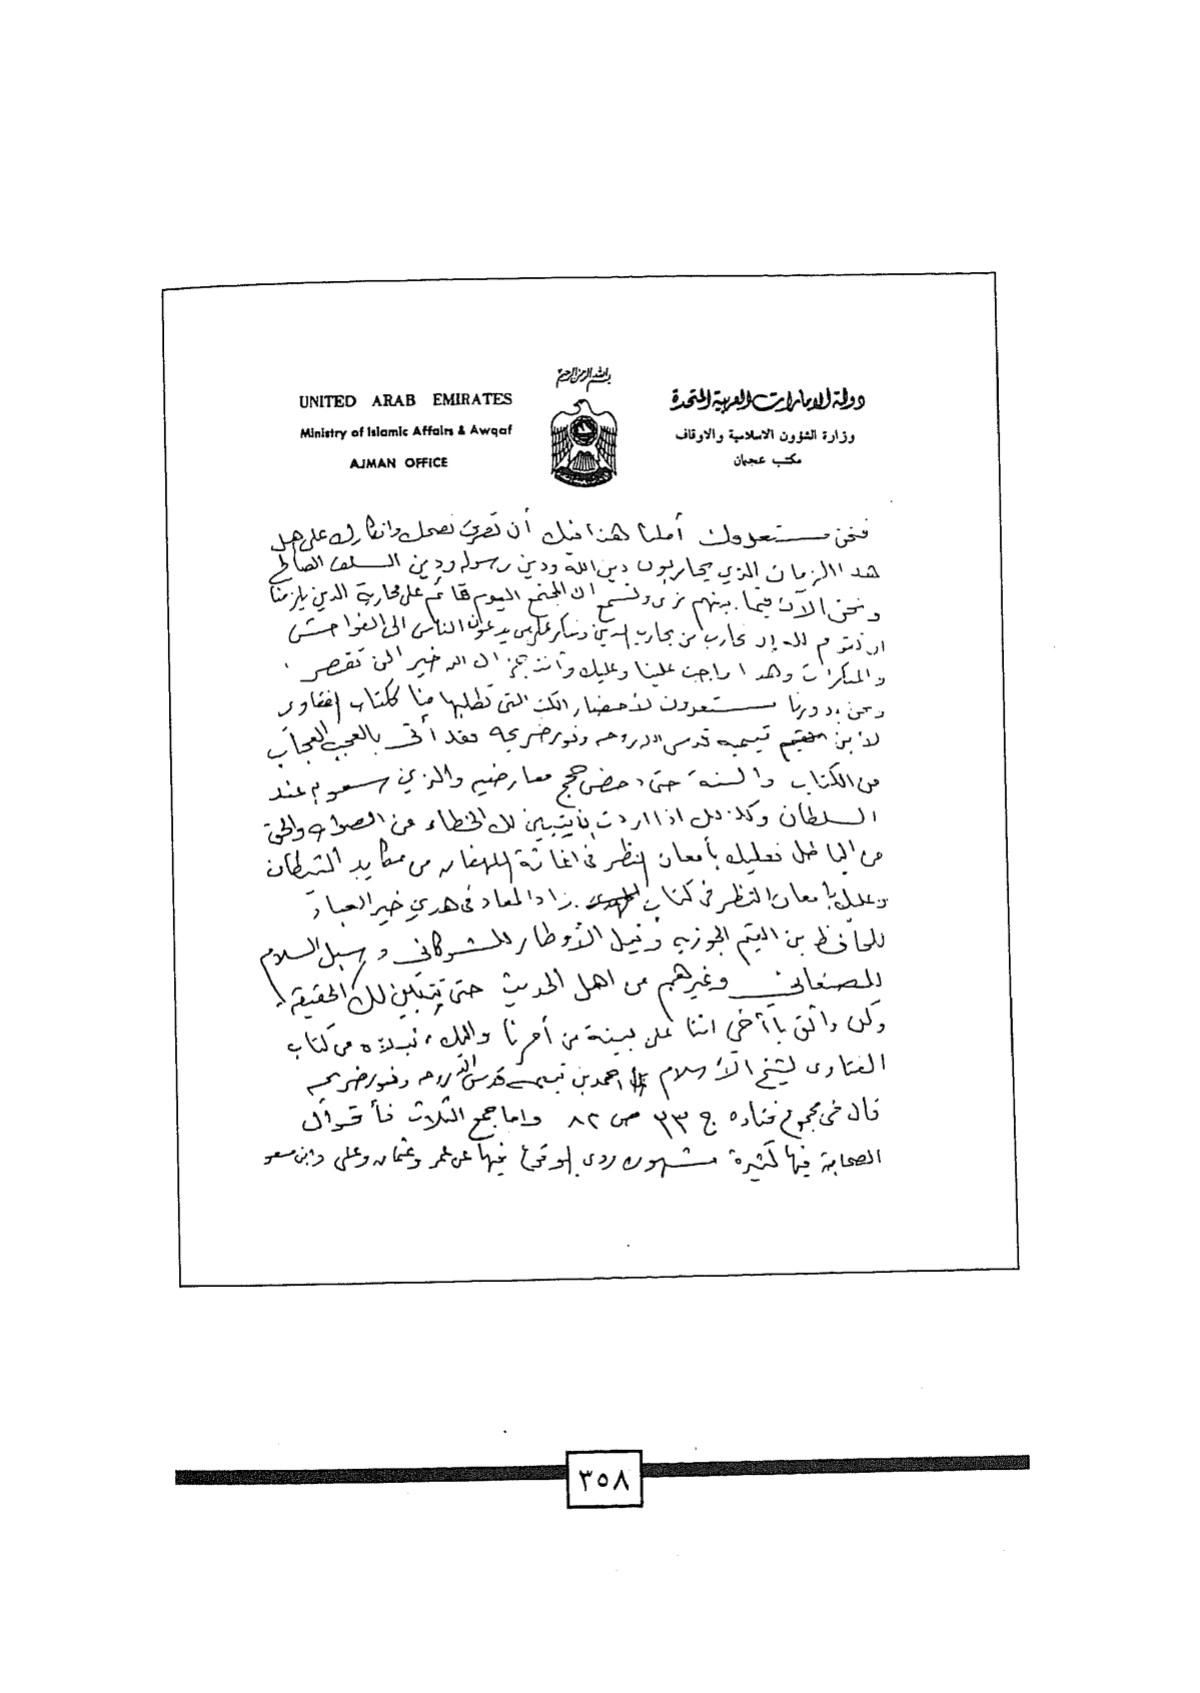 بسم الله الرحمن الرحيم
UNITED ARAB EMIRATES
Ministry of Islamic Affairs & Awqaf
AJMAN OFFICE
دولة الامارات العربية المتحدة
وزارة الشؤون الاسلامية والاوقاف
مكتب عجمان
فنحن مستعدون أملنا هذا منك أن تصرف نصحك وانكارك على اهل
هذا الزمان الذي يحاربون دين الله ودين رسوله ودين السلف الصالح
ونحن الآن فيما بينهم نرى ونسمع ان المجتمع اليوم قائم على محاربة الدين يلزمنا
ان نقوم لله ان نحارب من يحارب الدين وننكر على من يدعون الناس الى الفواحش
والمنكرات وهذا واجب علينا وعليك وأنت جزاك الله خير الن تقصر
ونحن بدورنا مستعدون لأحضار الكتب التي تطلبها منا ككتاب الفتاوى
لأبن تيميه قدس الله روحه ونور ضريحه فقد أتى بالعجب العجاب
من الكتاب والسنة حتى دحض حجج معارضيه والذي سعوا به عند
السلطان وكذلك اذا اردت ان يتبين لك الخطاء من الصواب والحق
من الباطل فعليك بأمعان النظر في اغاثة اللهفان من مكايد الشيطان
وعليك بأمعان النظر في كتاب زاد المعاد في هدي خير العباد
للحافظ بن القيم الجوزيه ونيل الأوطار للشوكاني وسبل السلام
للصنعاني وغيرهم من اهل الحديث حتى تتبين لك الحقيقة
وكن واثق يا أخي اننا على بينة من أمرنا واليك نبذه من كتاب
الفتاوى لشيخ الأسلام احمد بن تيميه قدس الله روحه ونور ضريحه
قال في مجموع فتاوه ج ٣٣ ص ٨٢ واما جمع الثلاث فأقوال
الصحابة فيها كثيرة مشهوره روي الوقوع فيها عن عمر وعثمان وعلي وابن مسعو
٣٥٨